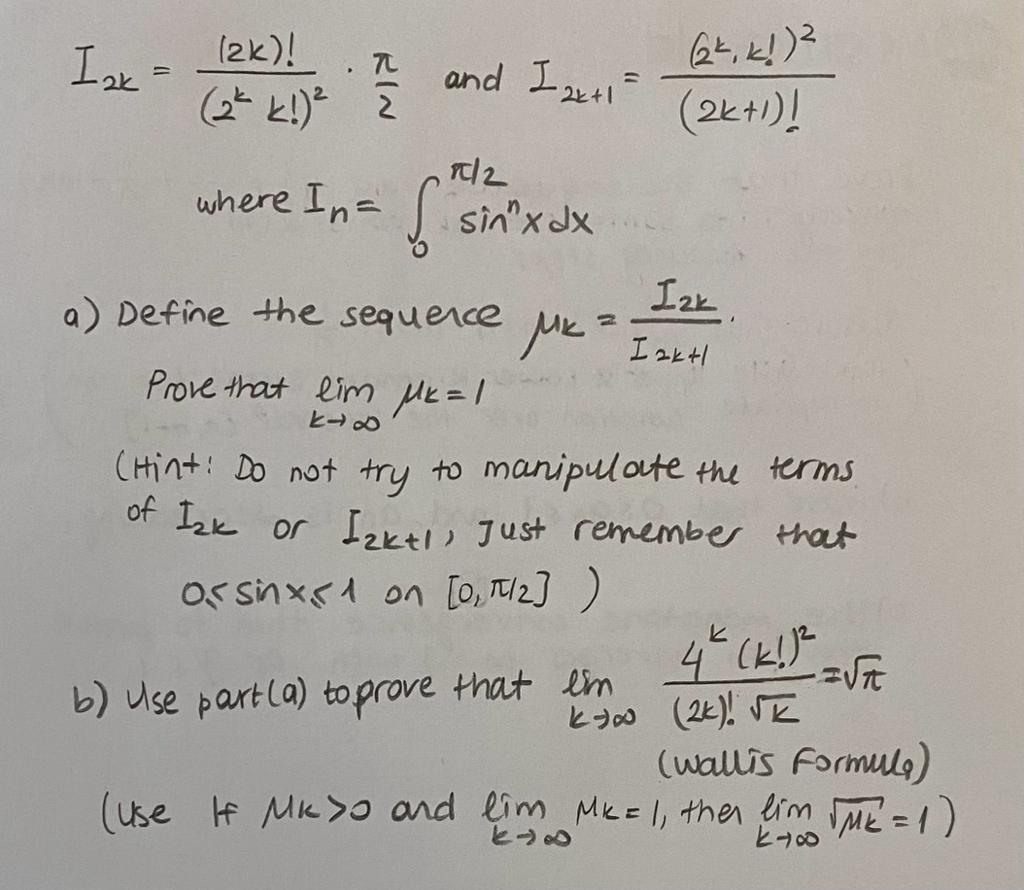 I_{2k} = (2k)! / (2^k k!)^2 · π/2 and I_{2k+1} = (2^k, k!)^2 / (2k+1)!
where I_n = ∫_0^{π/2} sin^n x dx
a) Define the sequence μ_k = I_{2k} / I_{2k+1}.
Prove that lim_{k→∞} μ_k = 1
(Hint: Do not try to manipulate the terms
of I_{2k} or I_{2k+1}, Just remember that
0≤ sin x ≤ 1 on [0, π/2] )
b) Use part (a) to prove that lim_{k→∞} 4^k (k!)^2 / (2k)! √k = √π
(Wallis Formula)
(Use If μ_k > 0 and lim_{k→∞} μ_k = 1, then lim_{k→∞} √μ_k = 1)